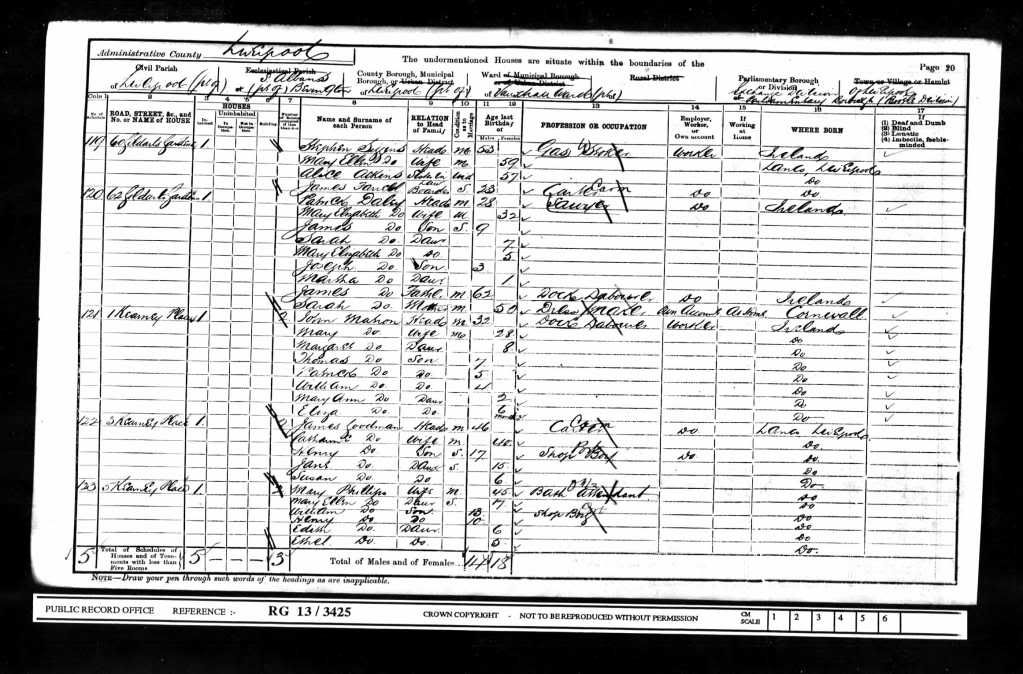 Administrative County Liverpool
The undermentioned Houses are situate within the boundaries of the
Page 20
Civil Parish Ecclesiastical Parish County Borough, Municipal Borough, or Urban District Ward of Municipal Borough or of Urban District Rural District Parliamentary Borough or Division Town or Village or Hamlet
of Liverpool (pt of) of (pt of) St Albans of Liverpool (pt of) of Vauxhall Ward (pt)
ROAD, STREET, &c., and No. or NAME of HOUSE HOUSES Uninhabited Name and Surname of each Person RELATION to Head of Family Condition as to Marriage Age last Birthday of Males Females PROFESSION OR OCCUPATION Employer, Worker, or Own account If Working at Home WHERE BORN If (1) Deaf and Dumb (2) Blind (3) Lunatic (4) Imbecile, feeble-minded
119 60 Gardens 1 Stephen Head M 53 Gas worker Ireland
Mary Ellen Do Wife M 59 Lancs, Liverpool
Alice Atkins Wid 57 Do
James Boarder S. 23 Carter Do Do
120 62 1 Patrick Daley Head M 28 Sawyer Do Ireland
Mary Elizabeth Do Wife M 32
James Do Son S. 9
Sarah Do Daur 7
Mary Elizabeth Do Do 5
Joseph Do Son 3
Martha Do Daur 1
James Do Father M 62 Dock Labourer Do Ireland
Sarah Do Mother M. 50 Own Account At home Cornwall
121 1 Kearney Place 1 2 John Mahon Head M 32 Dock Labourer Worker Ireland
Mary Do Wife M 28 Do
Margaret Do Daur 8 Do
Thomas Do Son 7 Do
Patrick Do Do 5 Do
William Do Do 4 Do
Mary Ann Do Daur 2 Do
Eliza Do Do 6 Do
122 3 Kearney Place 1 2 James Goodman Head M 46 Carter Do Lancs Liverpool
Catharine Do Wife M 40 Do
Henry Do Son S. 17 Shop Boy Do Do
Jane Do Daur S. 15 Do
Susan Do Do 6 Do
123 5 Kearney Place 1. Mary Phillips Wife M. 45 Bath Attendant Do
Mary Ellen Do Daur S. 17 Do
William Do Son 13 Shop Boy Do
Henry Do Do 10 Do
Edith Do Daur 6 Do
Ethel Do Do 5 Do.
5 Total of Schedules of Houses and of Tenements with less than Five Rooms 5 — — — 3 Total of Males and of Females... 14 18
NOTE—Draw your pen through such words of the headings as are inapplicable.
PUBLIC RECORD OFFICE REFERENCE :- RG 13 / 3425 CROWN COPYRIGHT - NOT TO BE REPRODUCED WITHOUT PERMISSION CM SCALE 1 2 3 4 5 6